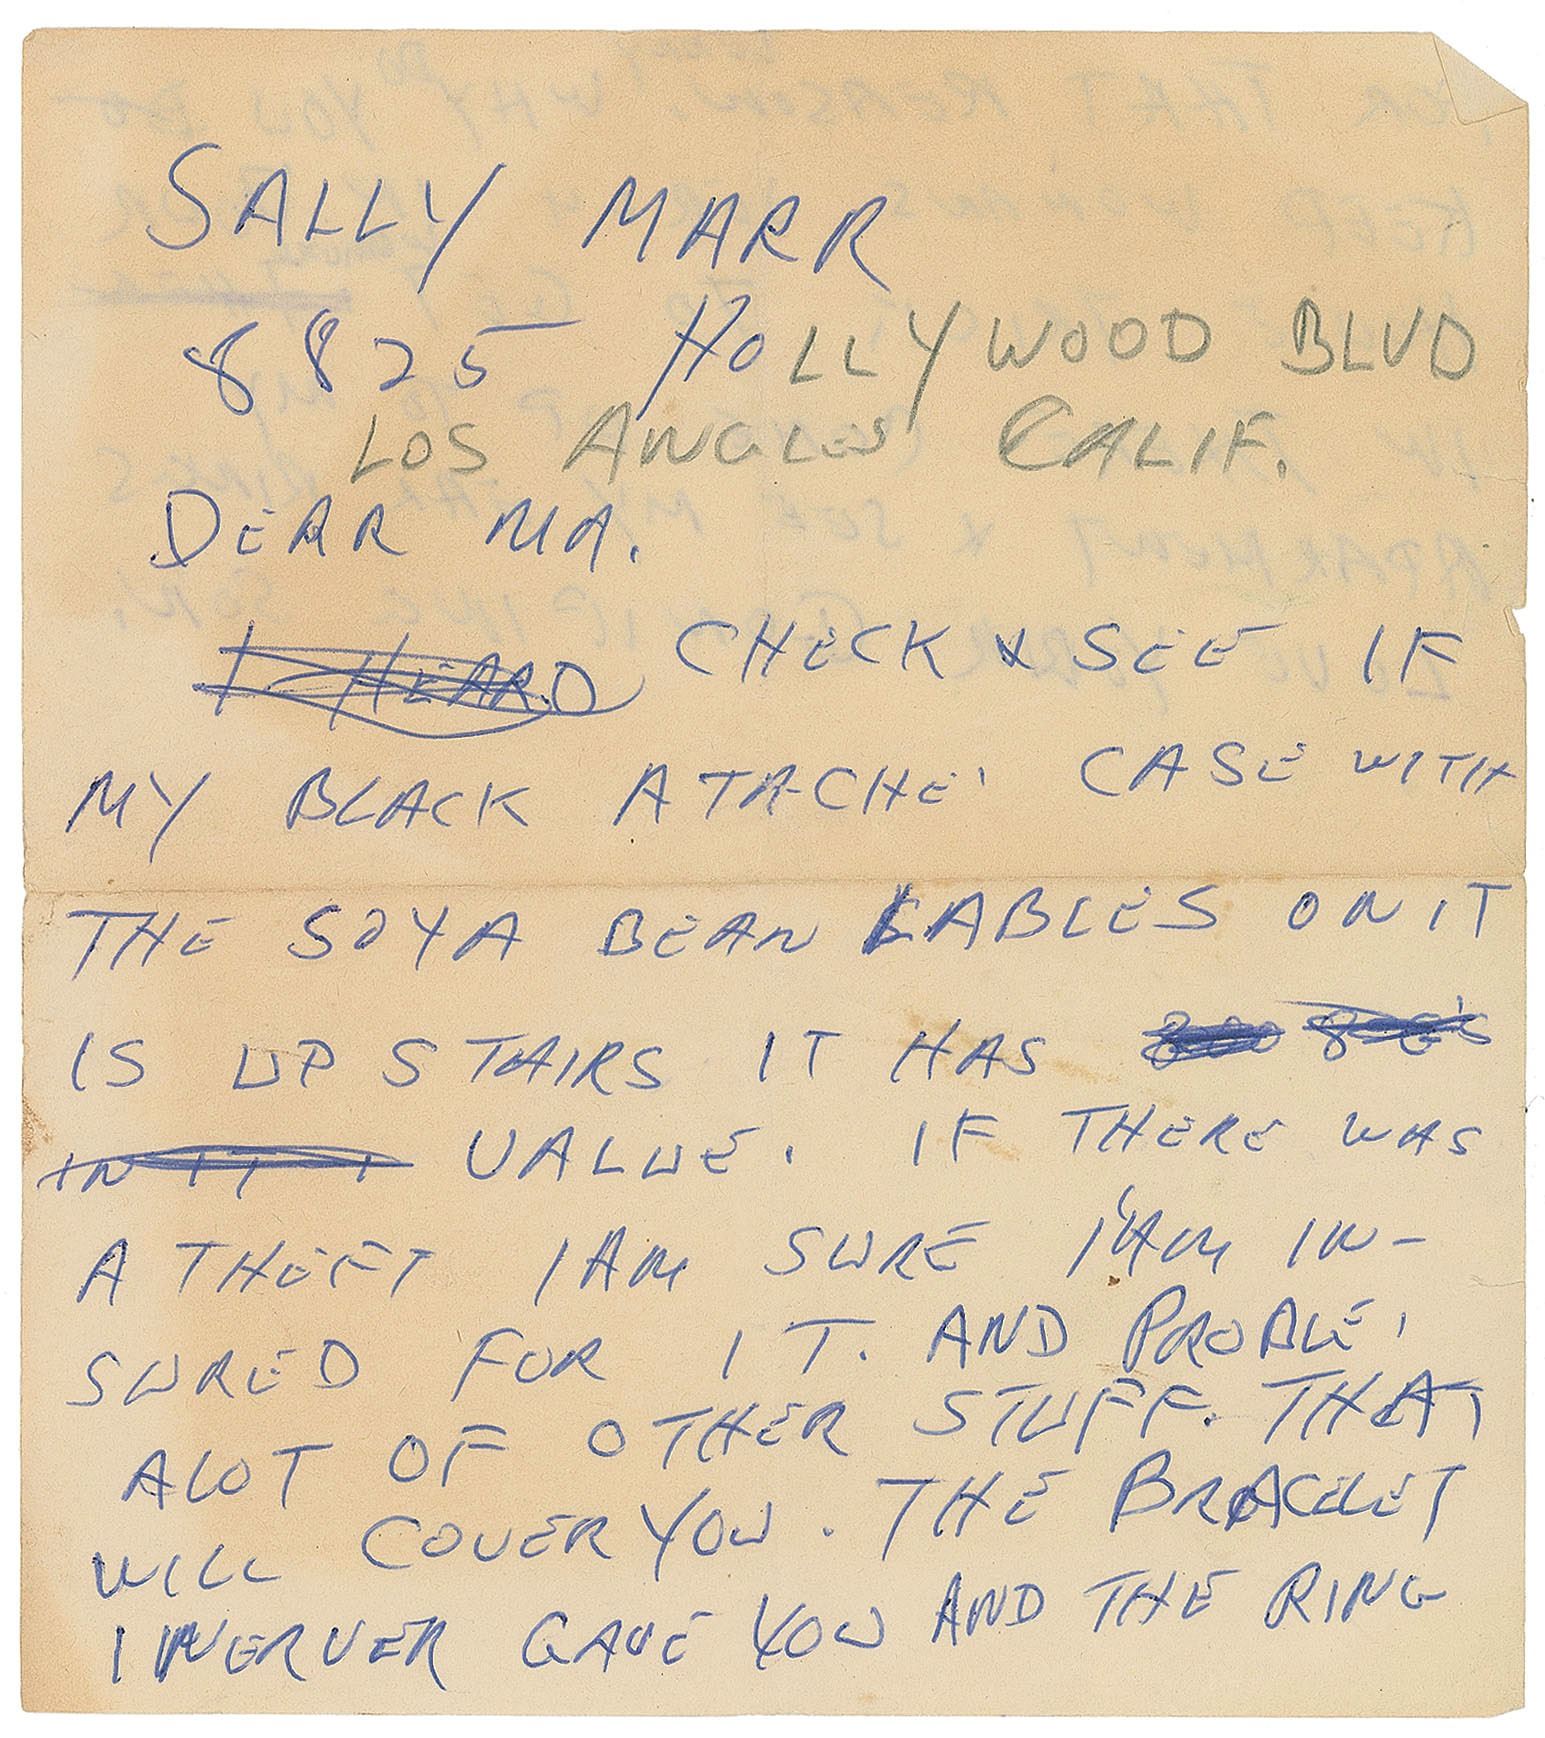 SALLY MARR
8825 HOLLYWOOD BLVD
LOS ANGLES CALIF.
DEAR MA.
I HEARD CHECK & SEE IF
MY BLACK ATACHE' CASE WITH
THE SOYA BEAN LABLES ON IT
IS UP STAIRS IT HAS
IN IT VALUE. IF THERE WAS
A THEFT I AM SURE I AM IN-
SURED FOR IT. AND PROBLE'
ALOT OF OTHER STUFF. THAT
WILL COVER YOU. THE BRACELET
I NERVER GAVE YOU AND THE RING